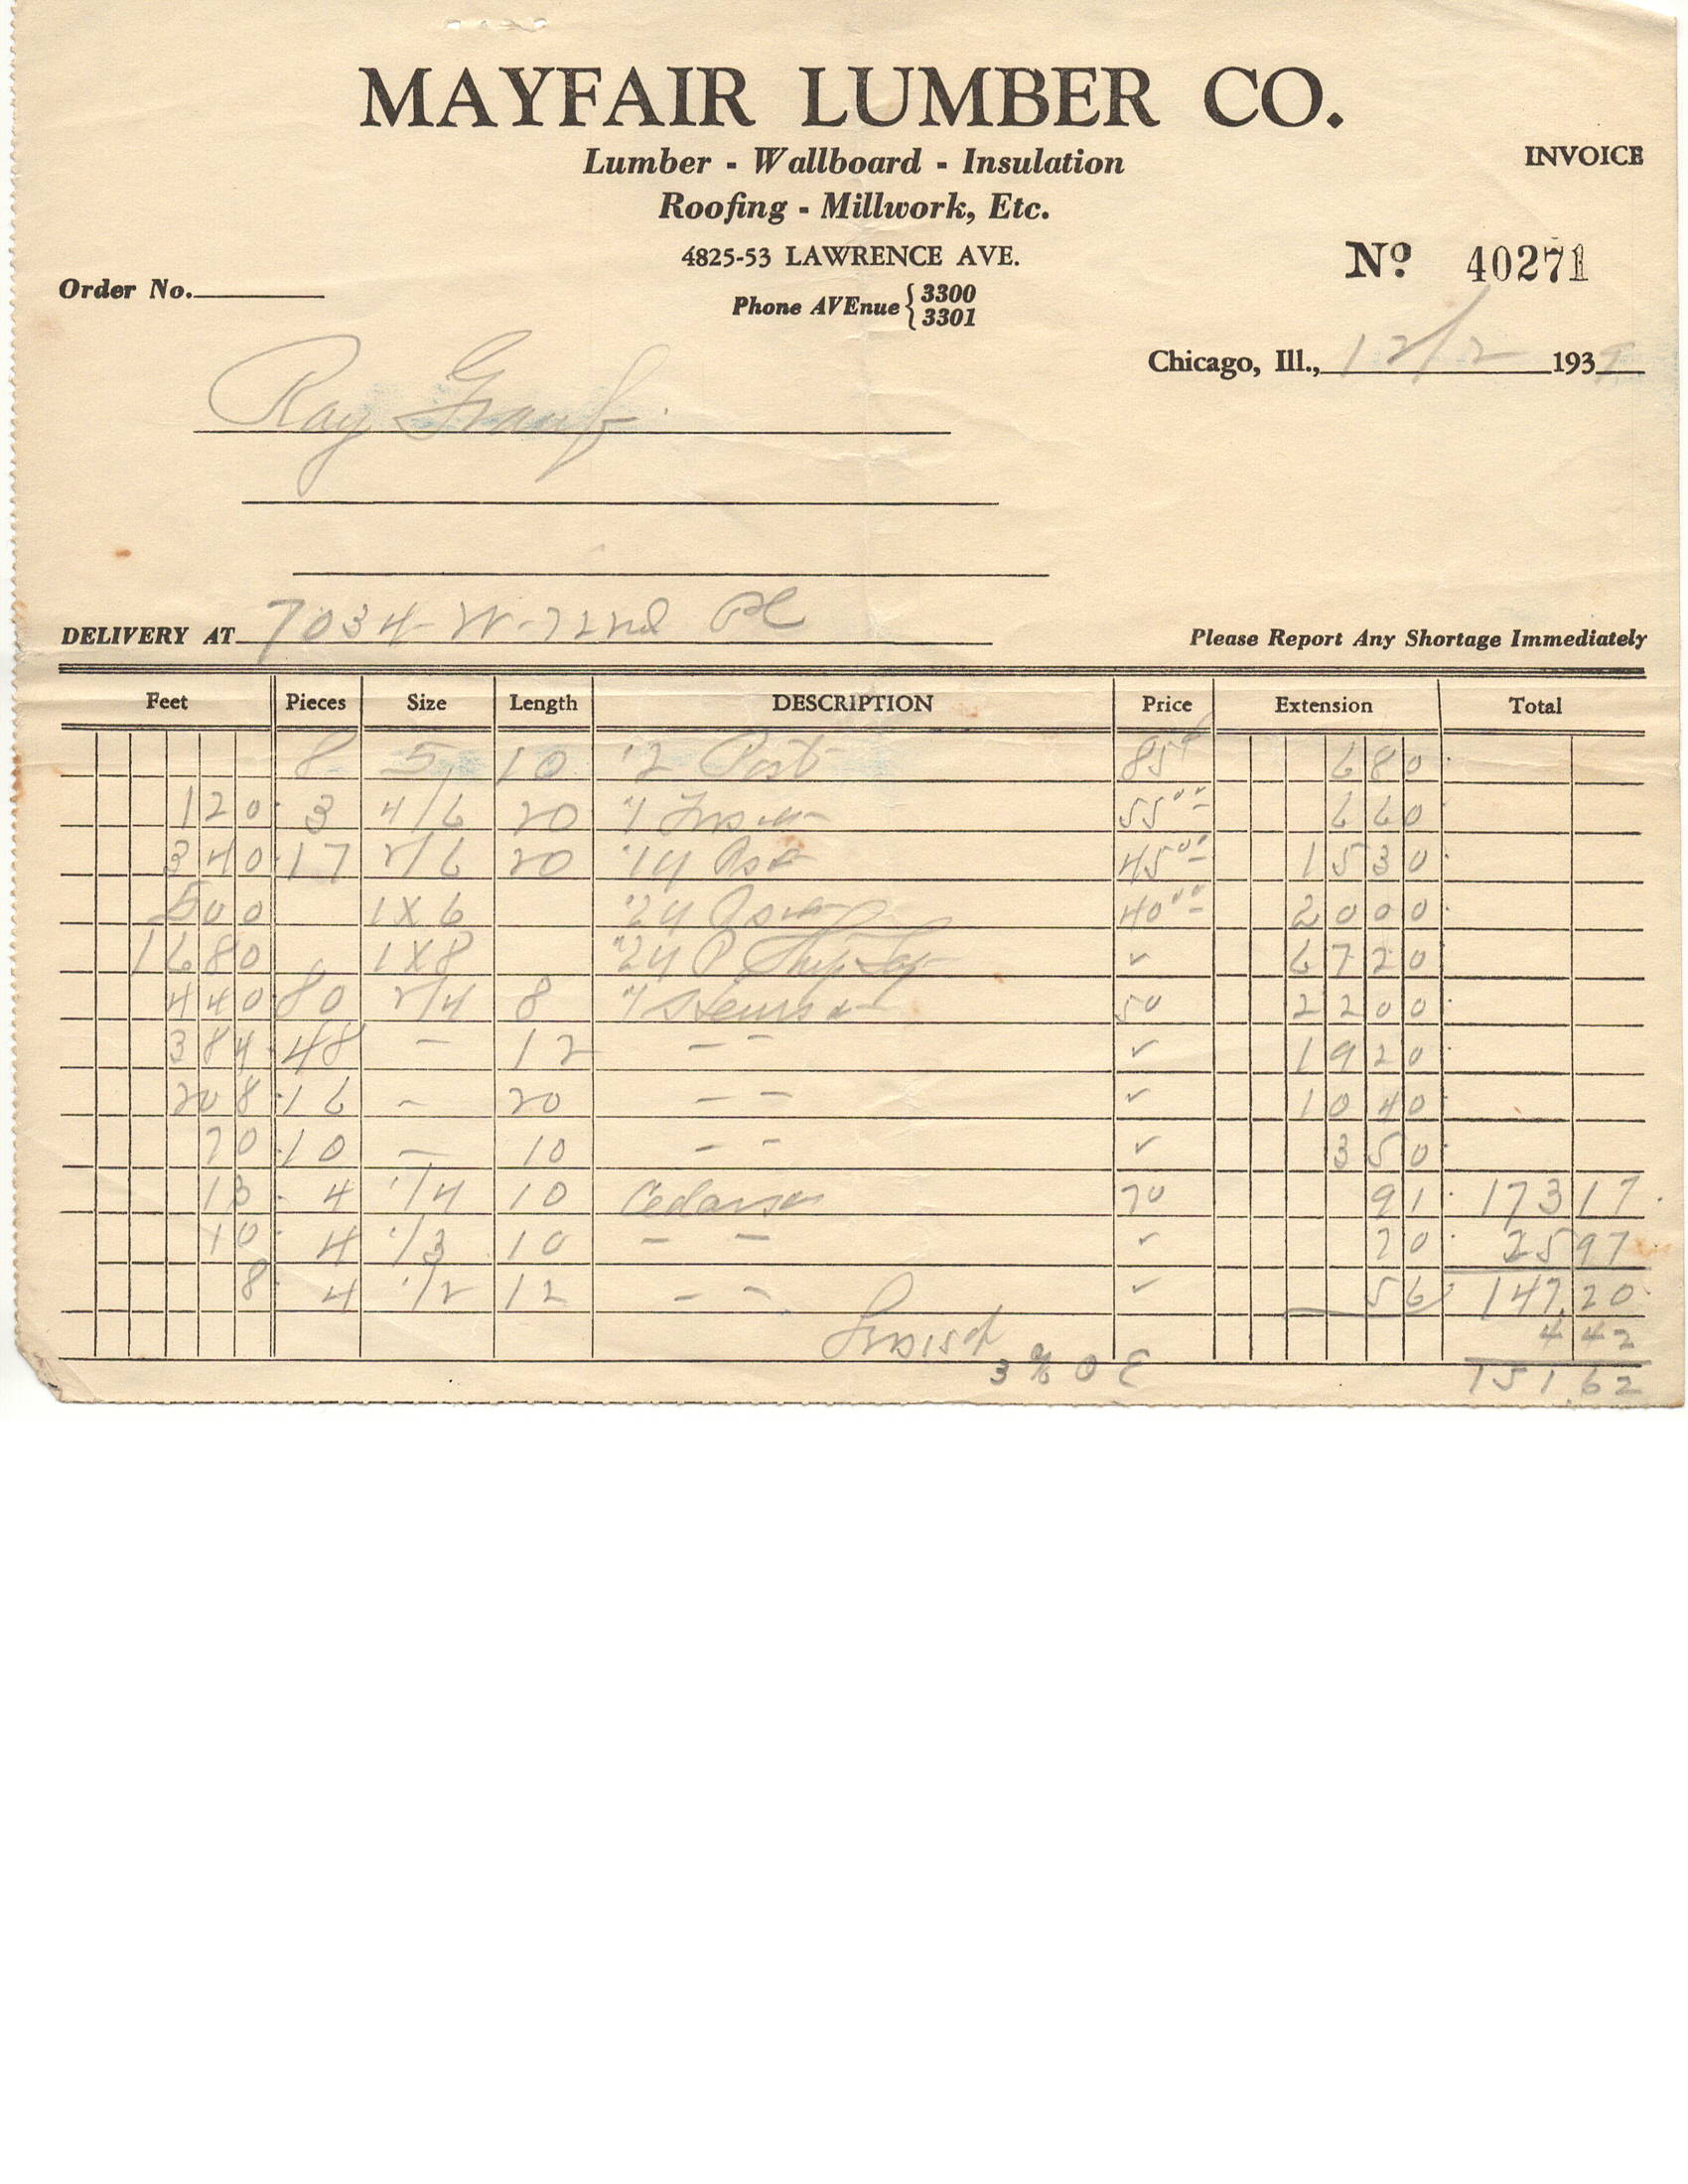 MAYFAIR LUMBER CO.
Lumber - Wallboard - Insulation
INVOICE
Roofing - Millwork, Etc.
4825-53 LAWRENCE AVE.
Nº 40271
Order No.
Phone AVEnue { 3300
3301
Chicago, Ill., 12/2 1939
Ray
DELIVERY AT 7034 W-72nd Pl
Please Report Any Shortage Immediately
Feet Pieces Size Length DESCRIPTION Price Extension Total
8 5 10 '2 Post 85¢ 680
120 3 4/6 20 "1 55 00 660
340 17 2/6 20 45 00 1530
500 1X6 "24 40 00 2000
1680 1X8 "24 P Ship Lap ✓ 6720
440 80 2/4 8 "1 50 2200
384 48 - 12 - - ✓ 1920
208 16 - 20 - - ✓ 1040
70 10 - 10 - - ✓ 350
13 4 1/4 10 70 91 173 17
10 4 1/3 10 - - ✓ 70 25 97
8 4 1/2 12 - - ✓ 56 147.20
4 42
3 % O E 151.62